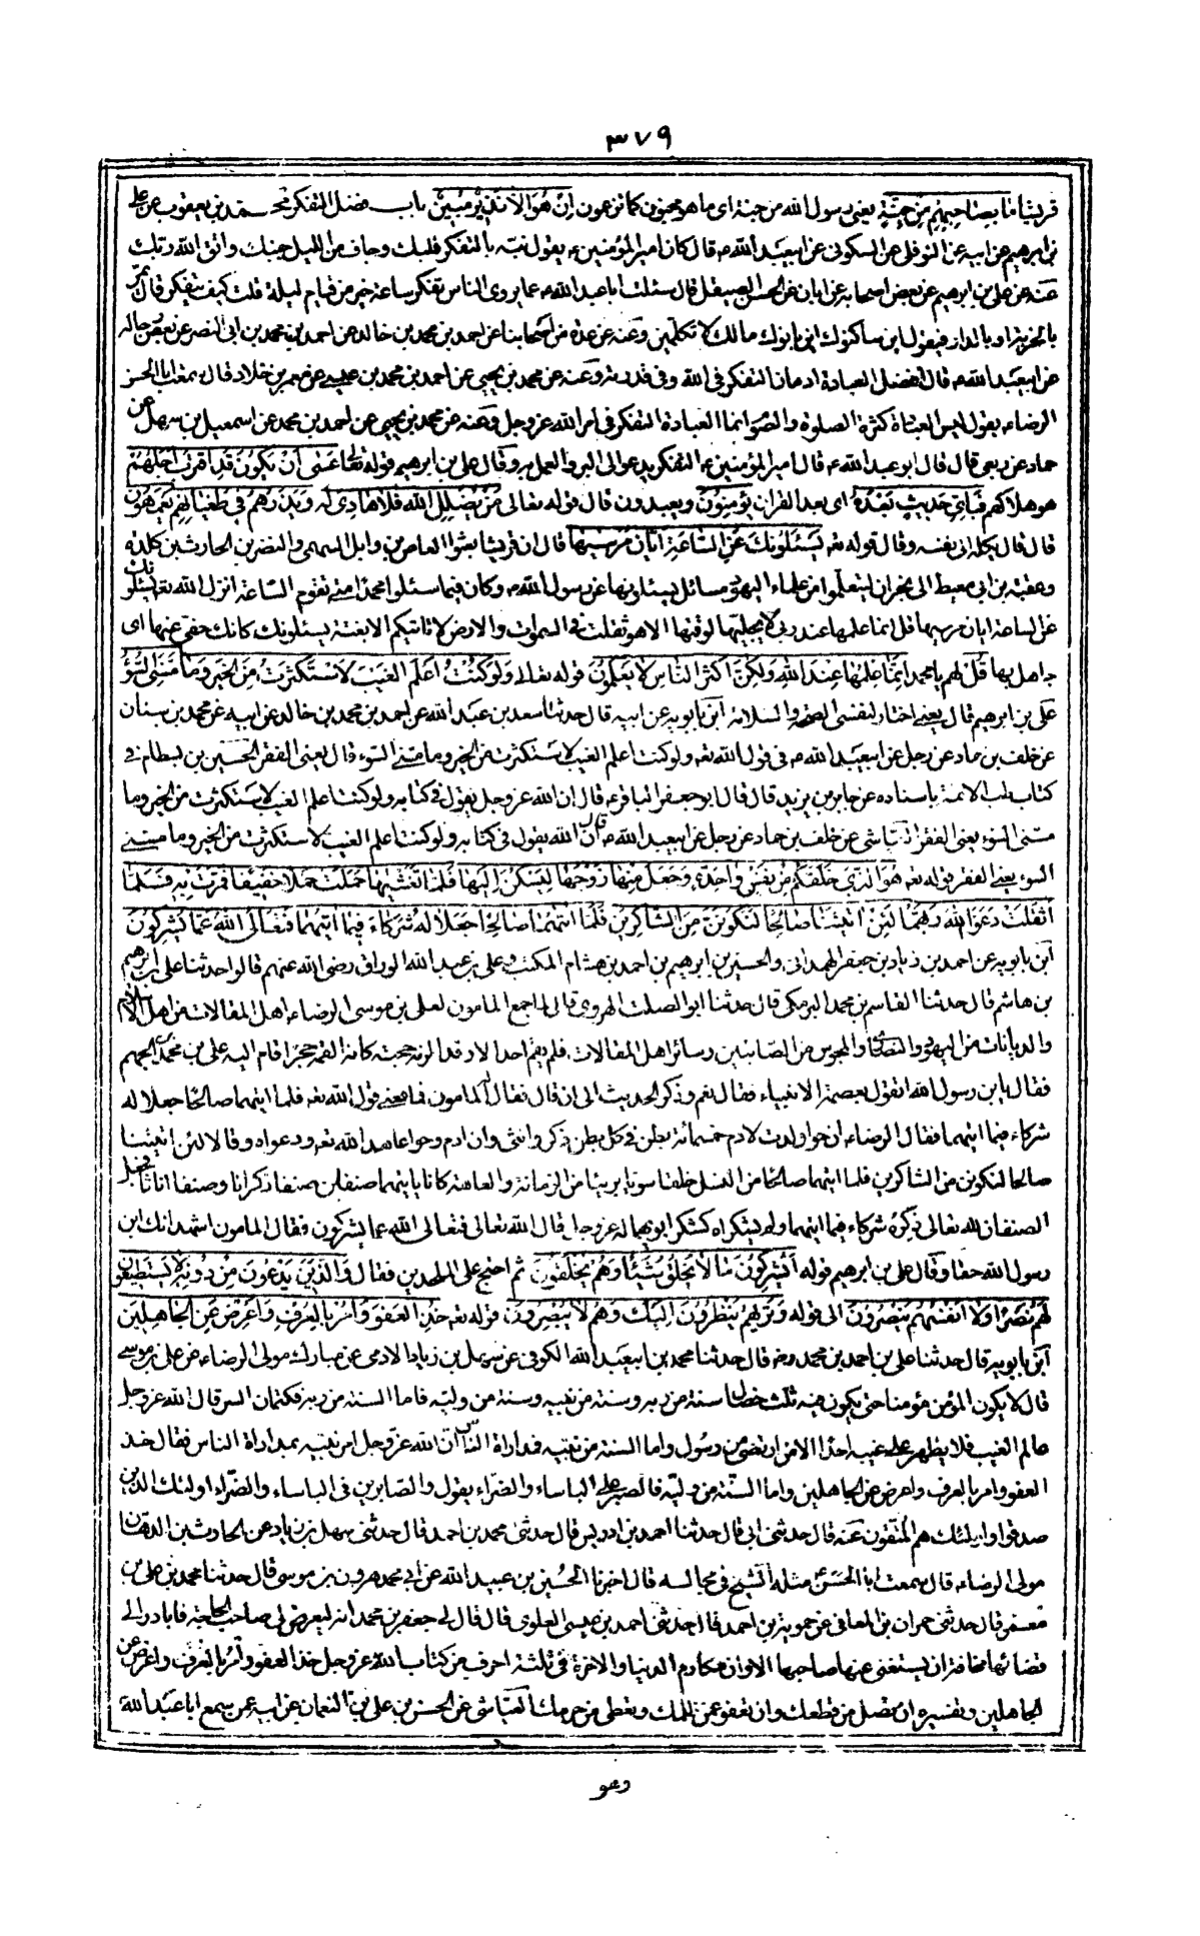 ٣٧٩
قريشا ما بصاحبهم من جنة يعنى رسول الله من جنة اى ما هو مجنون كما تزعمون ان هو الا نذير مبين باب فضل التفكر محمد بن يعقوب عن على
بن ابرهيم عن ابيه عن النوفلى عن السكونى عن ابيعبد الله ع قال كان امير المؤمنين ع يقول نبه بالتفكر قلبك وجاف من الليل جنبك واتق الله ربك
عنه عن على بن ابرهيم عن بعض اصحابه عن ابان عن الحسن الصيقل قال سئلت ابا عبد الله ع عما يروى الناس تفكر ساعة خير من قيام ليلة قلت كيف يتفكر قال يمر
بالخربة او بالدار فيقول اين ساكنوك اين بانوك مالك لا تكلمين وعنه عن عدة من اصحابنا عن احمد بن محمد بن خالد عن احمد بن محمد بن ابى النصر عن بعض رجاله
عن ابيعبد الله ع قال افضل العبادة ادمان التفكر فى الله وفى قدرته وعنه عن محمد بن يحيى عن احمد بن محمد بن عيسى عن معمر بن خلاد قال سمعت ابا الحسن
الرضا ع يقول ليس العبادة كثرة الصلوة والصوم انما العبادة التفكر فى امر الله عز وجل وعنه عن محمد بن يحيى عن احمد بن محمد عن اسمعيل بن سهل عن
حماد عن ربعى قال قال ابو عبد الله ع قال امير المؤمنين ع التفكر يدعو الى البر والعمل به وقال على بن ابرهيم قوله تعالى عسى ان يكون قد اقترب اجلهم
هو هلاكهم فباى حديث بعده اى بعد القران يؤمنون ويصدقون قال قوله تعالى من يضلل الله فلا هادى له ويذرهم فى طغيانهم يعمهون
قال قال يكله الى نفسه وقال قوله تع يسئلونك عن الساعة ايان مرسيها قال ان قريشا بعثوا العاص بن وايل السهمى والنضر بن الحارث بن كلدة
وعقبة بن ابى معيط الى نجران ليتعلموا من علماء اليهود مسائل يسئلونها عن رسول الله ص وكان فيما سئلوا محمدا متى تقوم الساعة انزل الله تع يسئلونك
عن الساعة ايان مرسيها قل انما علمها عند ربى لا يجليها لوقتها الا هو ثقلت فى السموات والارض لا تاتيكم الا بغتة يسئلونك كانك حفى عنها اى
جاهل بها قل لهم يا محمد انما علمها عند الله ولكن اكثر الناس لا يعلمون قوله تعالى ولو كنت اعلم الغيب لاستكثرت من الخير وما مسنى السوء
على بن ابرهيم قال يعنى اختار لنفسى الصحة والسلامة ابن بابويه عن ابيه قال حدثنا سعد بن عبد الله عن احمد بن محمد بن خالد عن ابيه عن محمد بن سنان
عن خلف بن حماد عن رجل عن ابيعبد الله ع فى قول الله تع ولو كنت اعلم الغيب لاستكثرت من الخير وما مسنى السوء قال يعنى الفقر الحسين بن بسطام فى
كتاب طب الائمة باسناده عن جابر بن يزيد قال قال ابو جعفر الباقر ع قال ان الله عز وجل يقول فى كتابه ولو كنت اعلم الغيب لاستكثرت من الخير وما
مسنى السوء يعنى الفقر العياشى عن خلف بن حماد عن رجل عن ابيعبد الله ع قال ان الله يقول فى كتابه ولو كنت اعلم الغيب لاستكثرت من الخير وما مسنى
السوء يعنى الفقر قوله تع هو الذى خلقكم من نفس واحدة وجعل منها زوجها ليسكن اليها فلما تغشيها حملت حملا خفيفا فمرت به فلما
اثقلت دعوا الله ربهما لئن اتيتنا صالحا لنكونن من الشاكرين فلما اتيهما صالحا جعلا له شركاء فيما اتيهما فتعالى الله عما يشركون
ابن بابويه عن احمد بن زياد بن جعفر الهمدانى والحسين بن ابرهيم بن احمد بن هشام المكتب وعلى بن عبد الله الوراق رضى الله عنهم قالوا حدثنا على بن ابرهيم
بن هاشم قال حدثنا القاسم بن محمد البرمكى قال حدثنا ابو الصلت الهروى قال لما جمع المامون لعلى بن موسى الرضا ع اهل المقالات من اهل الاسلام
والديانات من اليهود والنصارى والمجوس من الصابئين وسائر اهل المقالات فلم يقم احد الا وقد الزمه حجته كانه القم حجرا قام اليه على بن محمد بن الجهم
فقال يا بن رسول الله اتقول بعصمة الانبياء فقال نعم وذكر الحديث الى ان قال فقال المامون فما معنى قول الله تع فلما اتيهما صالحا جعلا له
شركاء فيما اتيهما فقال الرضا ع ان حوا ولدت لادم خمسمائة بطن فى كل بطن ذكر وانثى وان ادم وحوا عاهدا الله تع ودعواه وقالا لئن اتيتنا
صالحا لنكونن من الشاكرين فلما اتيهما صالحا من النسل خلقا سويا بريئا من الزمانة والعاهة كانا ما اتيهما صنفين صنفا ذكرانا وصنفا اناثا فجعل
الصنفان لله تعالى ذكره شركاء فيما اتيهما ولم يشكراه كشكر ابويهما له عز وجل قال الله تعالى فتعالى الله عما يشركون فقال المامون اشهد انك ابن
رسول الله حقا وقال على بن ابرهيم قوله ايشركون ما لا يخلق شيئا وهم يخلقون ثم احتج على الملحدين فقال والذين يدعون من دونه لا يستطيعون
لهم نصرا ولا انفسهم ينصرون الى قوله وتريهم ينظرون اليك وهم لا يبصرون قوله تع خذ العفو وامر بالعرف واعرض عن الجاهلين
ابن بابويه قال حدثنا على بن احمد بن محمد رض قال حدثنا محمد بن ابيعبد الله الكوفى عن سهل بن زياد الادمى عن مبارك مولى الرضا ع عن على بن موسى
قال لا يكون المؤمن مؤمنا حتى يكون فيه ثلث خصال سنة من ربه وسنة من نبيه وسنة من وليه فاما السنة من ربه فكتمان السر قال الله عز وجل
عالم الغيب فلا يظهر على غيبه احدا الا من ارتضى من رسول واما السنة من نبيه فمداراة الناس ان الله عز وجل امر نبيه بمداراة الناس فقال خذ
العفو وامر بالعرف واعرض عن الجاهلين واما السنة من وليه فالصبر على الباساء والضراء يقول والصابرين فى الباساء والضراء اولئك الذين
صدقوا واولئك هم المتقون عنه قال حدثنى ابى قال حدثنا احمد بن ادريس قال حدثنى محمد بن احمد قال حدثنى سهل بن زياد عن الحارث بن الدلهاث
مولى الرضا ع قال سمعت ابا الحسن ع مثله الشيخ فى مجالسه قال اخبرنا الحسين بن عبيد الله عن ابى محمد هرون بن موسى قال حدثنا محمد بن على بن
معمر قال حدثنى حمران بن المعافى عن حمويه بن احمد قال حدثنى احمد بن عيسى العلوى قال قال لى جعفر بن محمد انه ليعرض لى صاحب الحاجة فابادر الى
قضائها مخافة ان يستغنى عنها صاحبها الا وان مكارم الدنيا والاخرة فى ثلثة احرف من كتاب الله عز وجل خذ العفو وامر بالعرف واعرض عن
الجاهلين وتفسيره ان تصل من قطعك وان تعفو عمن ظلمك وتعطى من حرمك العياشى عن الحسن بن على بن النعمان عن ابيه عمن سمع ابا عبد الله
وعو